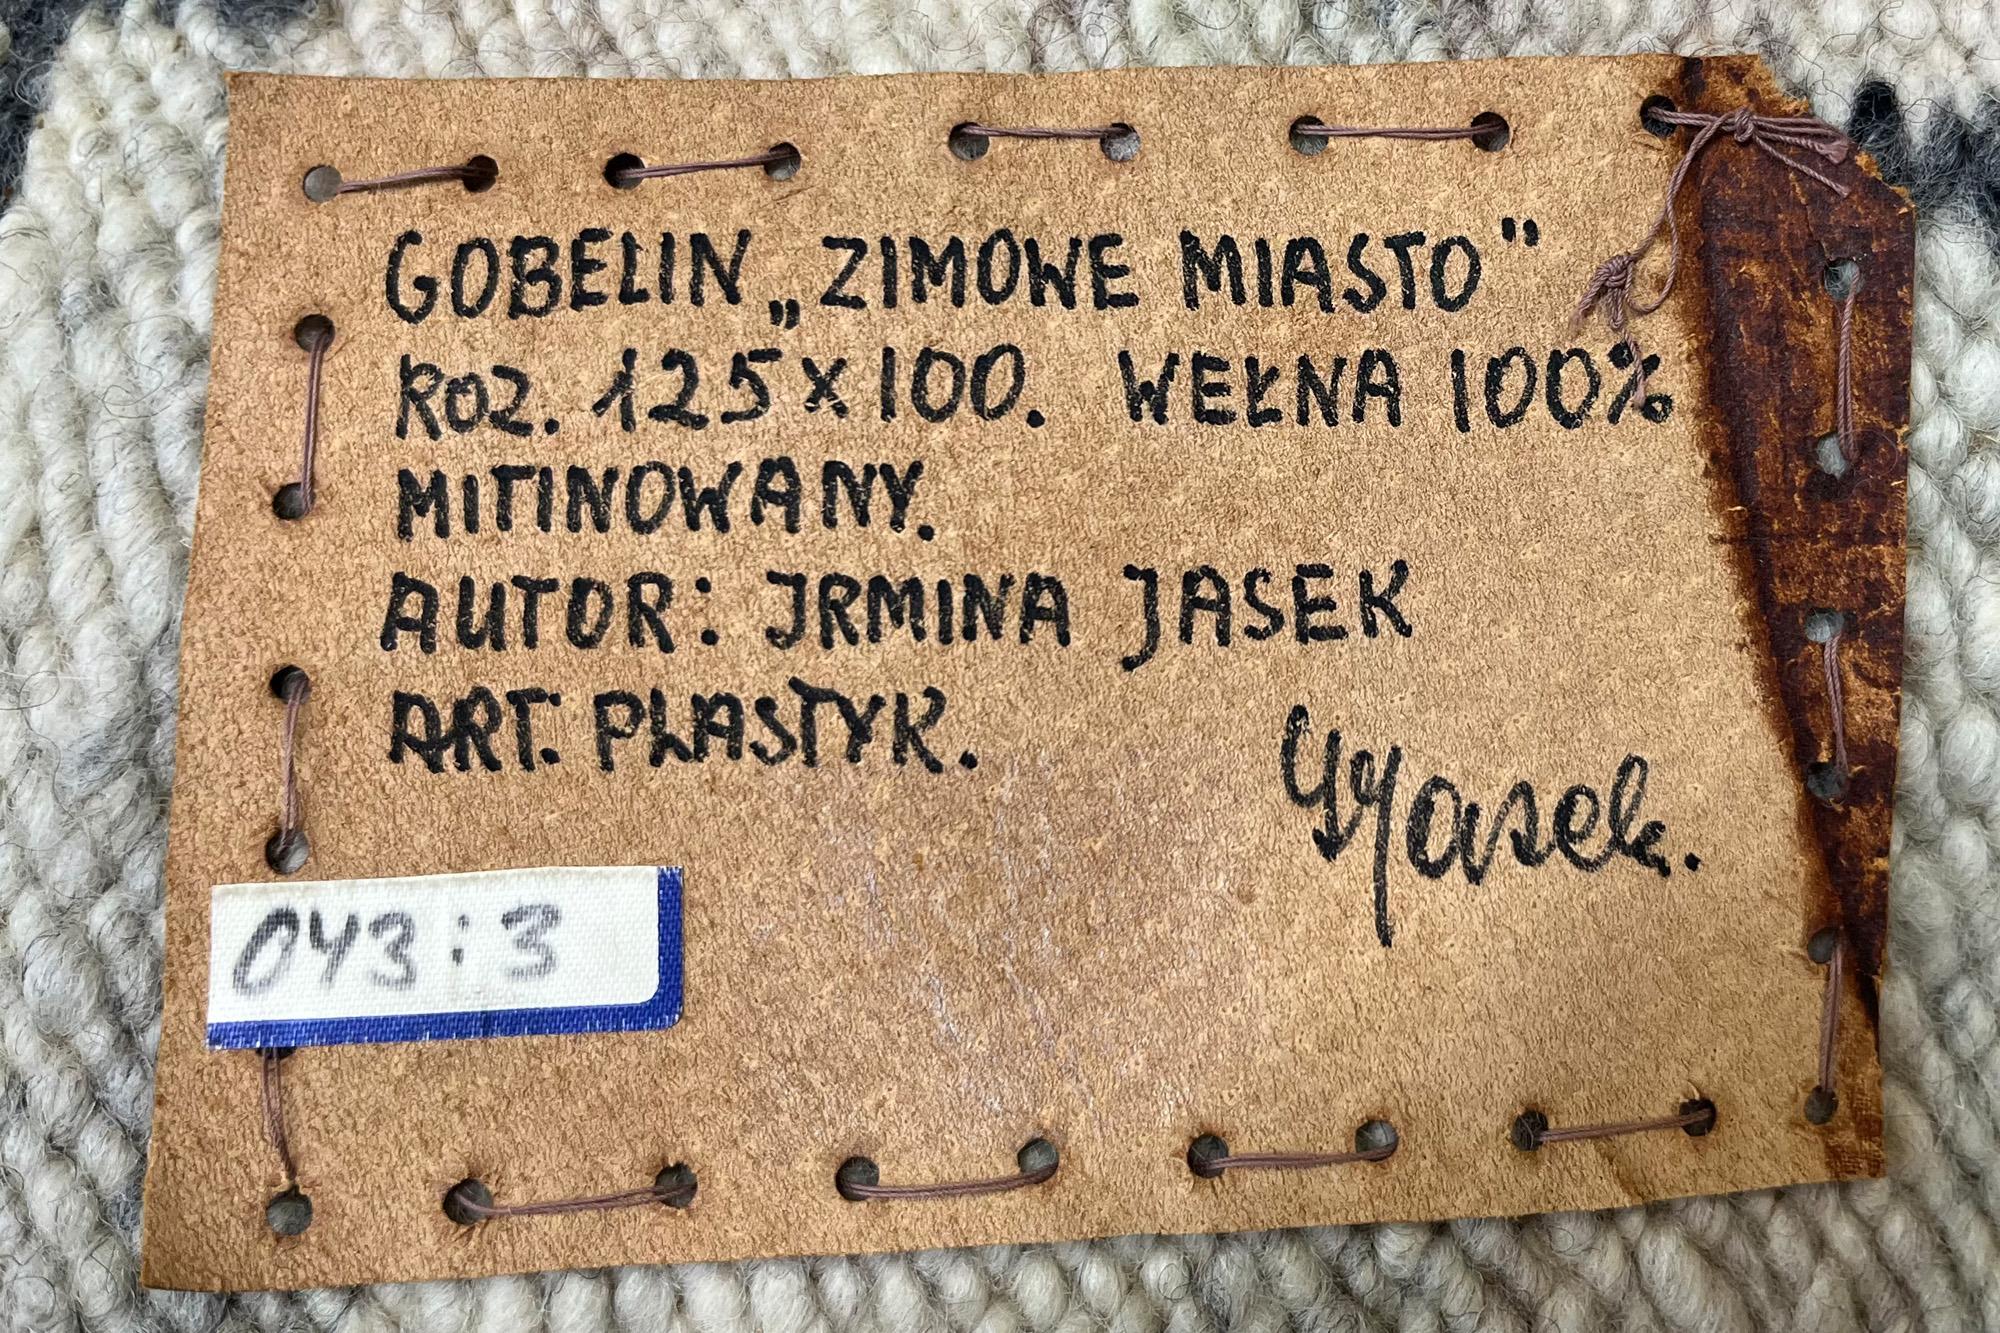 GOBELIN „ZIMOWE MIASTO"
ROZ. 125 x 100. WEŁNA 100%
MITINOWANY.
AUTOR: IRMINA JASEK
ART. PLASTYK.
IJasek.
043:3